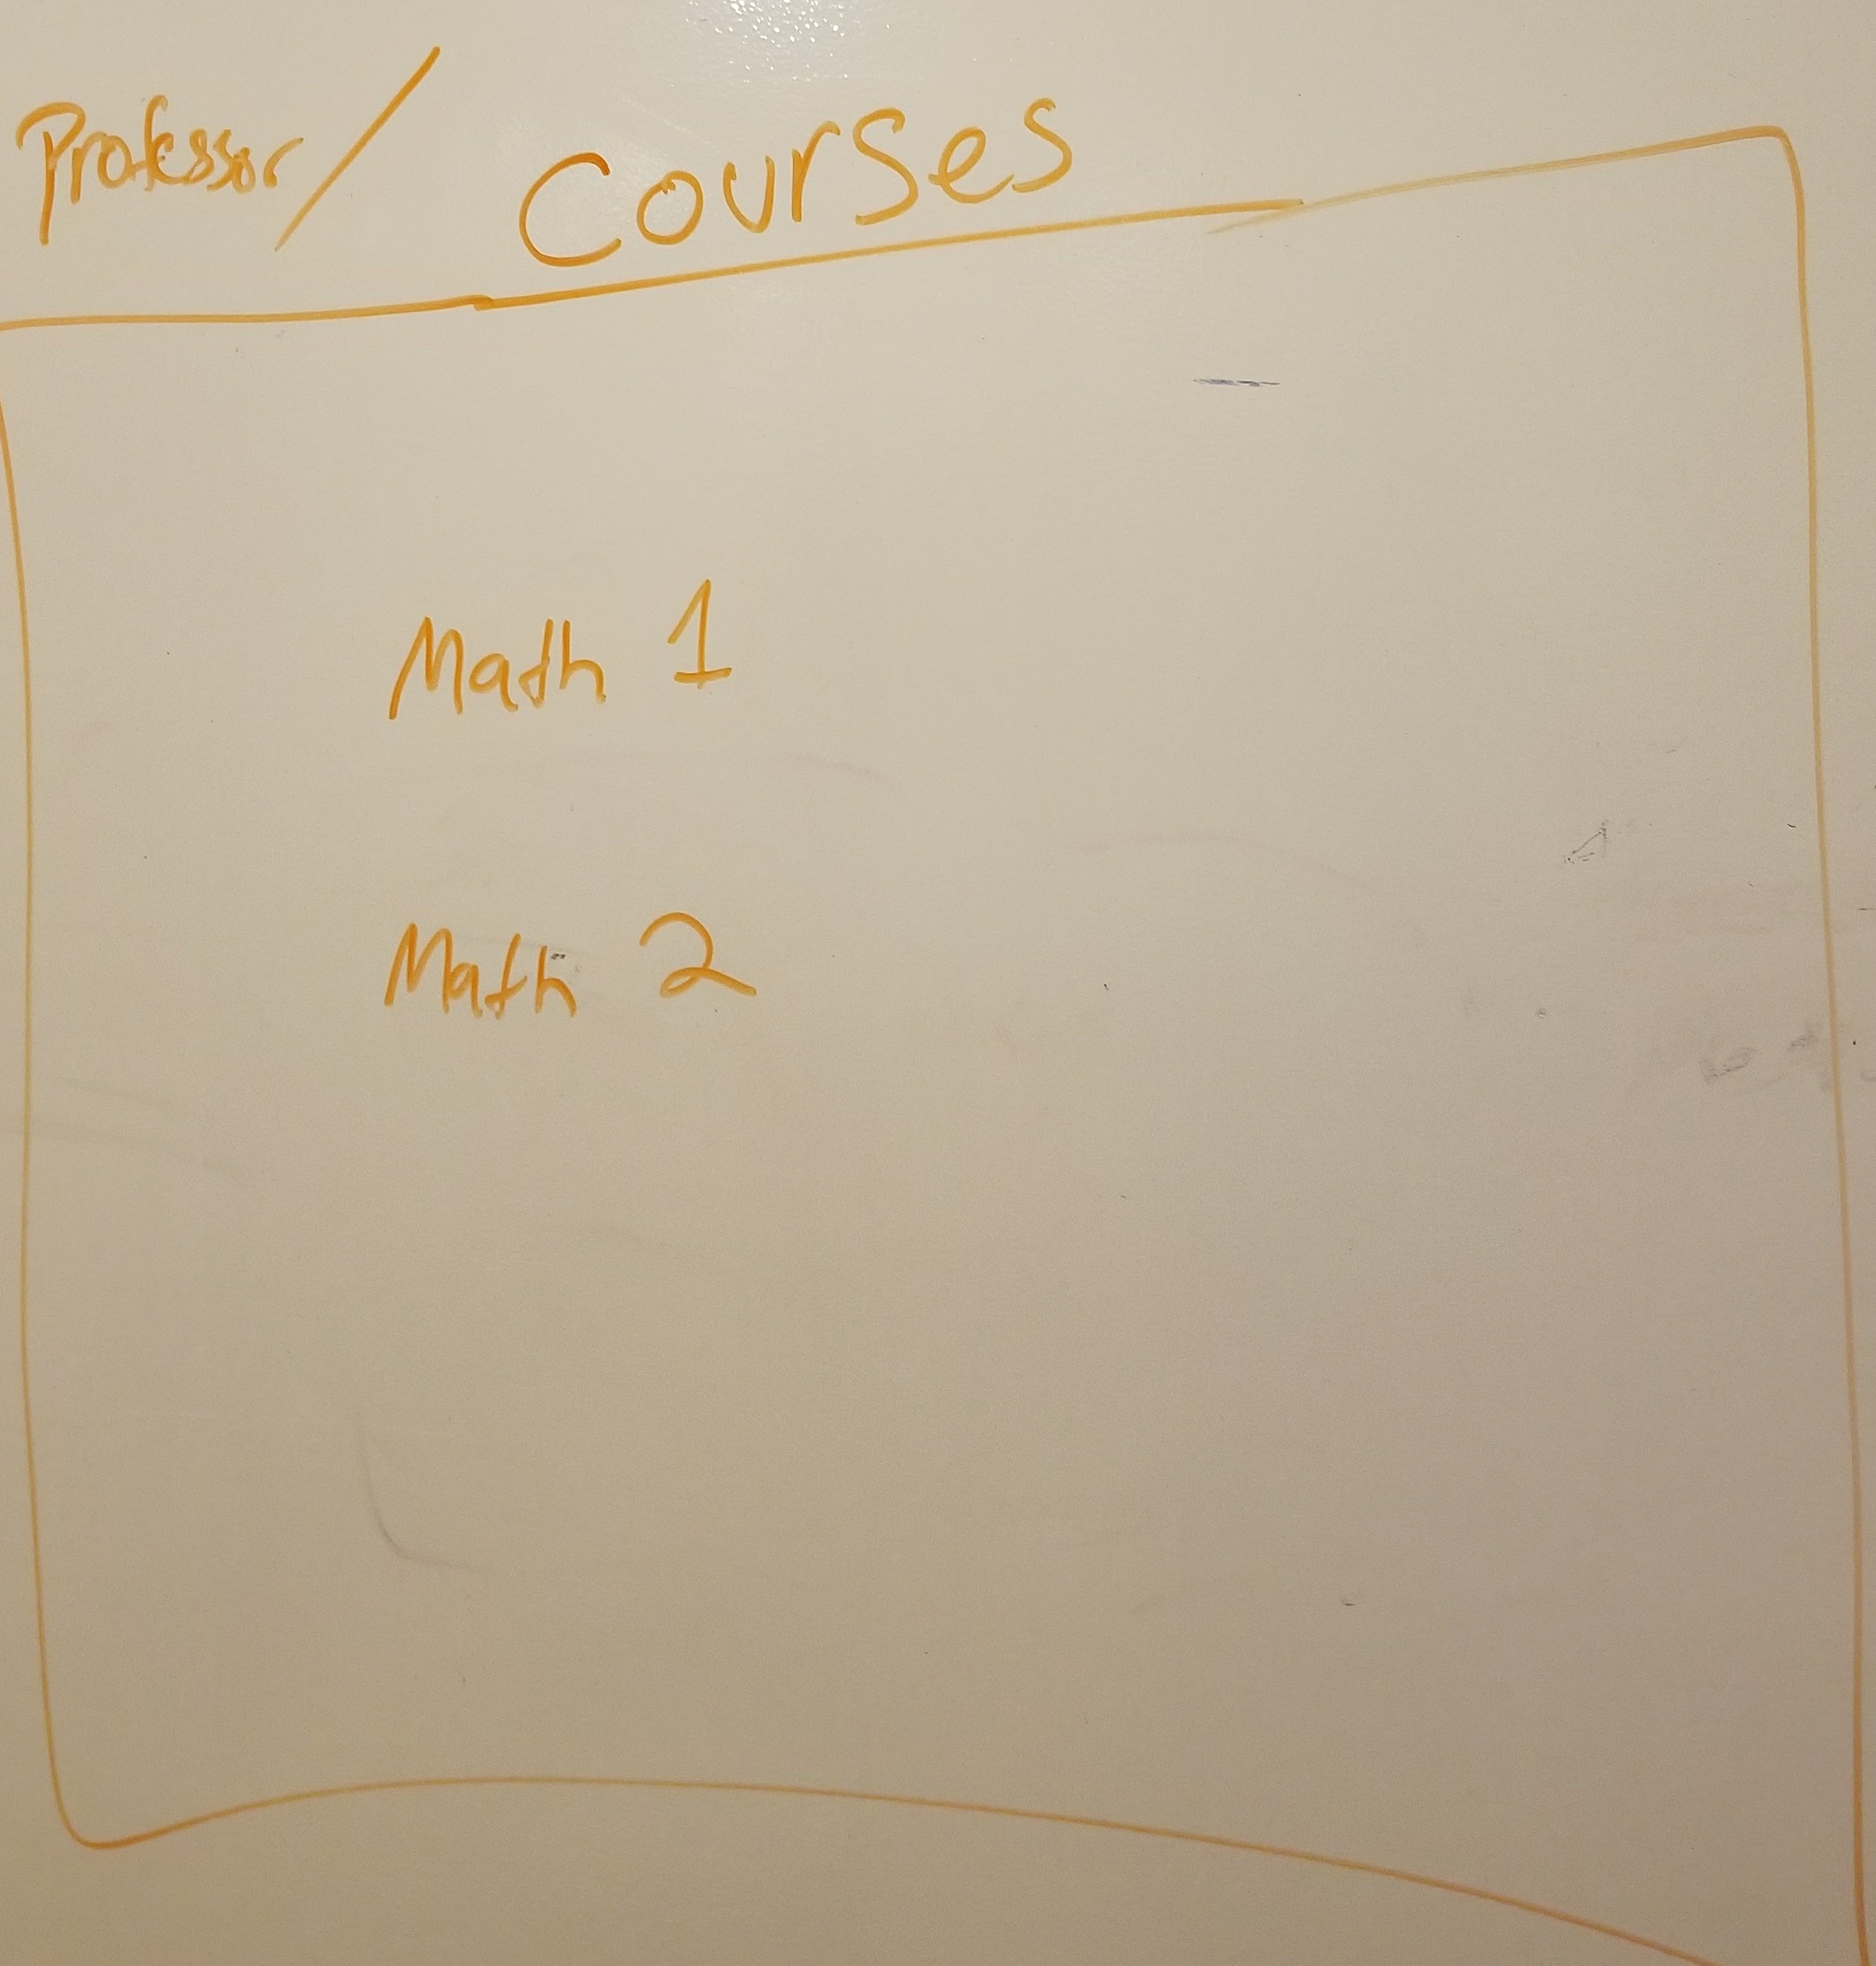 Professor / Courses
Math 1
Math 2